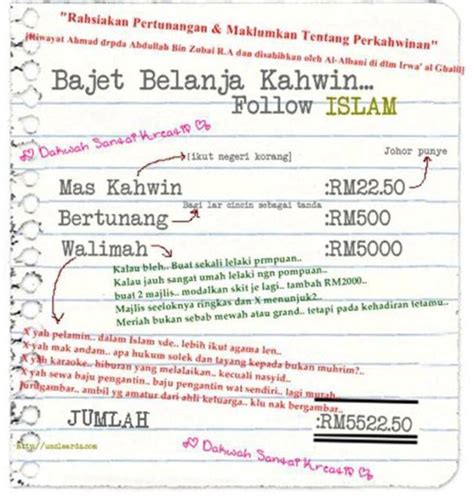 "Rahsiakan Pertunangan & Maklumkan Tentang Perkahwinan"
[Riwayat Ahmad drpda Abdullah Bin Zobai R.A dan disahihkan oleh Al-Albani di dlm Irwa' al Ghalil]
Bajet Belanja Kahwin...
Follow ISLAM
Dakwah Santai Kreatif
[ikut negeri korang]
Johor punye
Mas Kahwin :RM22.50
Bagi lar cincin sebagai tanda
Bertunang :RM500
Walimah :RM5000
Kalau bleh.. Buat sekali lelaki prmpuan..
Kalau jauh sangat umah lelaki ngn pompuan..
buat 2 majlis.. modalkan skit je lagi.. tambah RM2000..
Majlis seeloknya ringkas dan X menunjuk2..
Meriah bukan sebab mewah atau grand.. tetapi pada kehadiran tetamu..
X yah pelamin.. dalam Islam xde.. lebih ikut agama len..
X yah mak andam.. apa hukum solek dan tayang kepada bukan muhrim?..
X yah karaoke.. hiburan yang melalaikan.. kecuali nasyid..
X yah sewa baju pengantin.. baju pengantin wat sendiri.. lagi murah..
Jurugambar.. ambil yg amatur dari ahli keluarga.. klu nak bergambar..
JUMLAH :RM5522.50
Dakwah Santai Kreatif